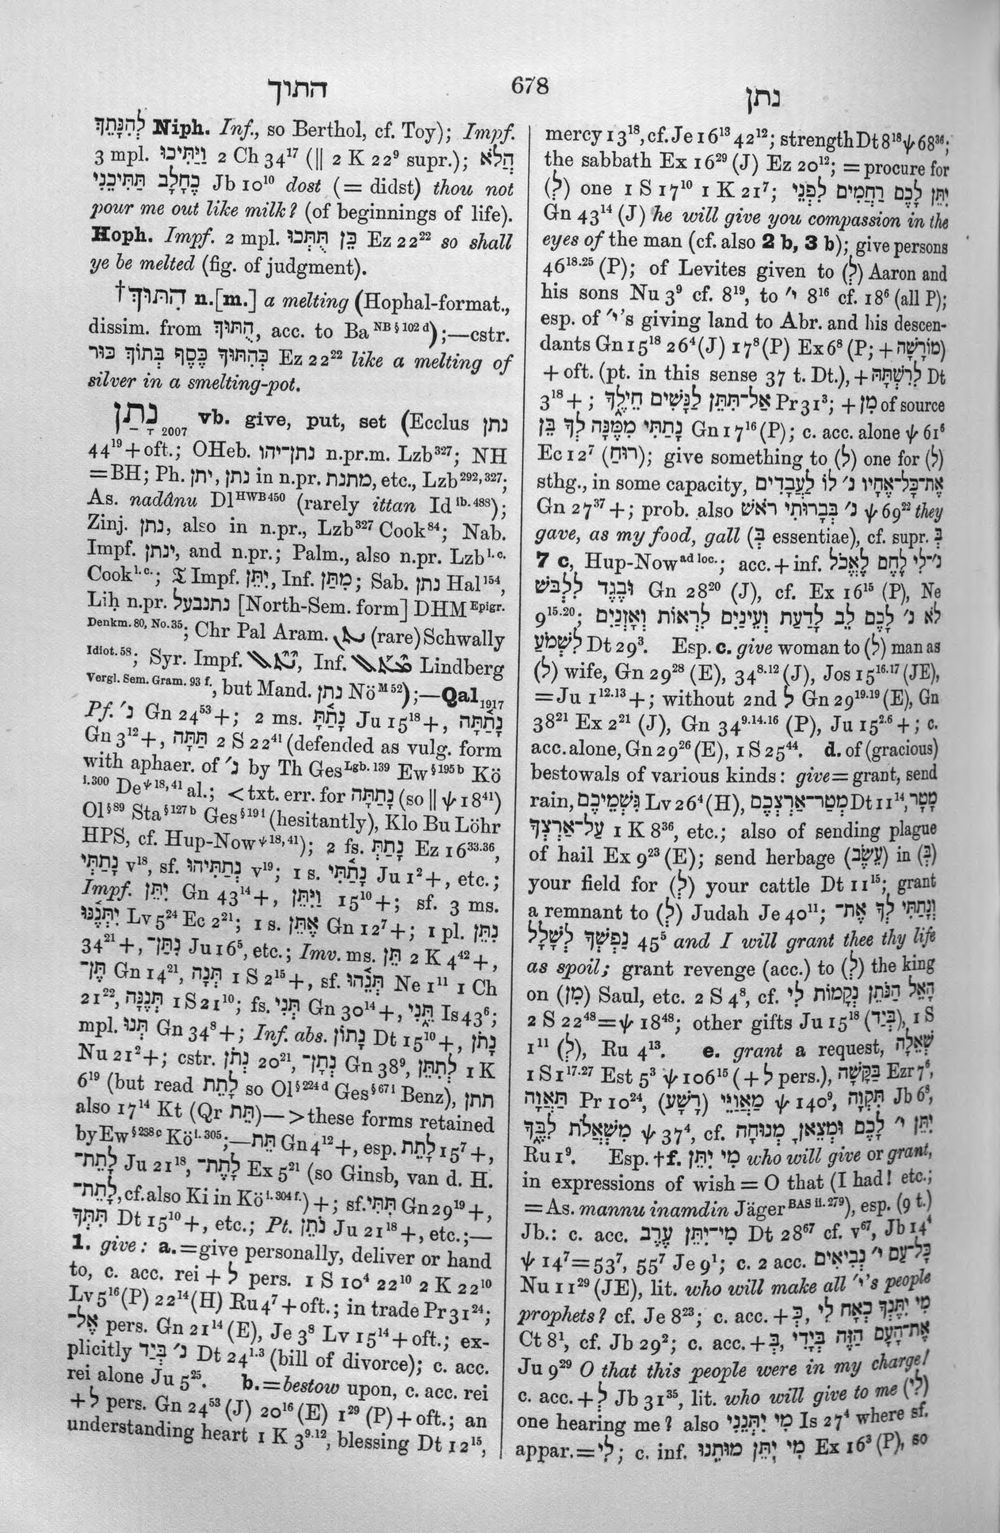 התוך
678
נתן
לְהַנְתָּךְ Niph. Inf., so Berthol, cf. Toy); Impf.
3 mpl. וַיַּתִּיכוּ 2 Ch 34¹⁷ (‖ 2 K 22⁹ supr.); הֲלֹא
כֶחָלָב תַּתִּיכֵנִי Jb 10¹⁰ dost (= didst) thou not
pour me out like milk? (of beginnings of life).
Hoph. Impf. 2 mpl. כֵּן תֻּתְּכוּ Ez 22²² so shall
ye be melted (fig. of judgment).
†הִתּוּךְ n.[m.] a melting (Hophal-format.,
dissim. from הֻתּוּךְ, acc. to Ba NB § 102 d);—cstr.
כְּהִתּוּךְ כֶּסֶף בְּתוֹךְ כּוּר Ez 22²² like a melting of
silver in a smelting-pot.
נָתַן 2007 vb. give, put, set (Ecclus נתן
44¹⁹ + oft.; OHeb. נתן־יהו n.pr.m. Lzb³²⁷; NH
= BH; Ph. יתן, נתן in n.pr. מתנת, etc., Lzb²⁹²,³²⁷;
As. nadânu Dl HWB 450 (rarely ittan Id ib. 488);
Zinj. נתן, also in n.pr., Lzb³²⁷ Cook⁸⁴; Nab.
Impf. ינתן, and n.pr.; Palm., also n.pr. Lzb l.c.
Cook l.c.; 𝔗 Impf. יִתֵּן, Inf. מִתַּן; Sab. נתן Hal¹⁵⁴,
Liḥ n.pr. נתנבעל [North-Sem. form] DHM Epigr.
Denkm. 80, No. 35; Chr Pal Aram. (rare) Schwally
Idiot. 58; Syr. Impf. Inf. Lindberg
Vergl. Sem. Gram. 93 f., but Mand. נתן Nö M 52);—Qal 1917
Pf. נ׳ Gn 24⁵³ +; 2 ms. נָתַתָּ Ju 15¹⁸ +, נָתַתָּה
Gn 3¹² +, תַּתָּה 2 S 22⁴¹ (defended as vulg. form
with aphaer. of נ׳ by Th Ges Lgb. 139 Ew § 195 b Kö
i. 300 De ψ 18, 41 al.; < txt. err. for נָתַתָּה (so ‖ ψ 18⁴¹)
Ol § 89 Sta § 127 b Ges § 19 i (hesitantly), Klo Bu Löhr
HPS, cf. Hup-Now ψ 18, 41); 2 fs. נָתַתְּ Ez 16³³·³⁶,
נָתַתִּי v¹⁸, sf. נְתַתִּיהוּ v¹⁹; 1 s. נָתַתִּי Ju 1² +, etc.;
Impf. יִתֵּן Gn 43¹⁴ +, וַיִּתֵּן 15¹⁰ +; sf. 3 ms.
יִתְּנֶנּוּ Lv 5²⁴ Ec 2²¹; 1 s. אֶתֵּן Gn 12⁷ +; 1 pl. נִתֵּן
34²¹ +, נִתֶּן־ Ju 16⁵, etc.; Imv. ms. תֵּן 2 K 4⁴² +,
תֶּן־ Gn 14²¹, תְּנָה 1 S 2¹⁵ +, sf. תְּנֵהוּ Ne 1¹¹ 1 Ch
21²², תְּנֶנָּה 1 S 21¹⁰; fs. תְּנִי Gn 30¹⁴ +, תֵּנִי Is 43⁶;
mpl. תְּנוּ Gn 34⁸ +; Inf. abs. נָתוֹן Dt 15¹⁰ +, נָתֹן
Nu 21² +; cstr. נְתֹן 20²¹, נְתָן־ Gn 38⁹, לְתִתֵּן 1 K
6¹⁹ (but read לָתֵת so Ol § 224 d Ges § 67 i Benz), תתן
also 17¹⁴ Kt (Qr תֵּת)—> these forms retained
by Ew § 238 c Kö i. 305;—תֵּת Gn 4¹² +, esp. לָתֵת 15⁷ +,
לָתֶת־ Ju 21¹⁸, לָתֶת־ Ex 5²¹ (so Ginsb, van d. H.
לָתֵת־, cf. also Ki in Kö i. 304 f.) +; sf. תִּתִּי Gn 29¹⁹ +,
תִּתְּךָ Dt 15¹⁰ +, etc.; Pt. נֹתֵן Ju 21¹⁸ +, etc.;—
1. give: a. = give personally, deliver or hand
to, c. acc. rei + לְ pers. 1 S 10⁴ 22¹⁰ 2 K 22¹⁰
Lv 5¹⁶ (P) 22¹⁴ (H) Ru 4⁷ + oft.; in trade Pr 31²⁴;
אֶל־ pers. Gn 21¹⁴ (E), Je 3⁸ Lv 15¹⁴ + oft.; ex-
plicitly נ׳ בְּיַד Dt 24¹·³ (bill of divorce); c. acc.
rei alone Ju 5²⁵. b. = bestow upon, c. acc. rei
+ לְ pers. Gn 24⁵³ (J) 20¹⁶ (E) 1²⁹ (P) + oft.; an
understanding heart 1 K 3⁹·¹², blessing Dt 12¹⁵,
mercy 13¹⁸, cf. Je 16¹³ 42¹²; strength Dt 8¹⁸ ψ 68³⁶;
the sabbath Ex 16²⁹ (J) Ez 20¹²; = procure for
(לְ) one 1 S 17¹⁰ 1 K 21⁷; יִתֵּן לָכֶם רַחֲמִים לִפְנֵי
Gn 43¹⁴ (J) he will give you compassion in the
eyes of the man (cf. also 2 b, 3 b); give persons
46¹⁸·²⁵ (P); of Levites given to (לְ) Aaron and
his sons Nu 3⁹ cf. 8¹⁹, to י׳ 8¹⁶ cf. 18⁶ (all P);
esp. of י׳'s giving land to Abr. and his descen-
dants Gn 15¹⁸ 26⁴ (J) 17⁸ (P) Ex 6⁸ (P; + מוֹרָשָׁה)
+ oft. (pt. in this sense 37 t. Dt.), + לְרִשְׁתָּהּ Dt
3¹⁸ +; אַל־תִּתֵּן לַנָּשִׁים חֵילֶךָ Pr 31³; + מִן of source
נָתַתִּי מִמֶּנָּה לְךָ בֵּן Gn 17¹⁶ (P); c. acc. alone ψ 61⁶
Ec 12⁷ (רוּחַ); give something to (לְ) one for (לְ)
sthg., in some capacity, אֶת־כָּל־אֶחָיו נ׳ לוֹ לַעֲבָדִים
Gn 27³⁷ +; prob. also נ׳ בְּבָרוּתִי רֹאשׁ ψ 69²² they
gave, as my food, gall (בְּ essentiae), cf. supr. בְּ
7 c, Hup-Now ad loc.; acc. + inf. נ׳־לִי לֶחֶם לֶאֱכֹל
וּבֶגֶד לִלְבֹּשׁ Gn 28²⁰ (J), cf. Ex 16¹⁵ (P), Ne
9¹⁵·²⁰; לֹא נ׳ לָכֶם לֵב לָדַעַת וְעֵינַיִם לִרְאוֹת וְאָזְנַיִם
לִשְׁמֹעַ Dt 29³. Esp. c. give woman to (לְ) man as
(לְ) wife, Gn 29²⁸ (E), 34⁸·¹² (J), Jos 15¹⁶·¹⁷ (JE),
= Ju 1¹²·¹³ +; without 2nd לְ Gn 29¹⁹·¹⁹ (E), Gn
38²¹ Ex 2²¹ (J), Gn 34⁹·¹⁴·¹⁶ (P), Ju 15²·⁶ +; c.
acc. alone, Gn 29²⁶ (E), 1 S 25⁴⁴. d. of (gracious)
bestowals of various kinds: give = grant, send
rain, גִּשְׁמֵיכֶם Lv 26⁴ (H), מְטַר־אַרְצְכֶם Dt 11¹⁴, מָטָר
עַל־אַרְצְךָ 1 K 8³⁶, etc.; also of sending plague
of hail Ex 9²³ (E); send herbage (עֵשֶׂב) in (בְּ)
your field for (לְ) your cattle Dt 11¹⁵; grant
a remnant to (לְ) Judah Je 40¹¹; וְנָתַתִּי לְךָ אֶת־
נַפְשְׁךָ לְשָׁלָל 45⁵ and I will grant thee thy life
as spoil; grant revenge (acc.) to (לְ) the king
on (מִן) Saul, etc. 2 S 4⁸, cf. הָאֵל הַנֹּתֵן נְקָמוֹת לִי
2 S 22⁴⁸ = ψ 18⁴⁸; other gifts Ju 15¹⁸ (בְּיַד), 1 S
1¹¹ (לְ), Ru 4¹³. e. grant a request, שְׁאֵלָה
1 S 1¹⁷·²⁷ Est 5³ ψ 106¹⁵ (+ לְ pers.), בַּקָּשָׁה Ezr 7⁶,
תַּאֲוָה Pr 10²⁴, מַאֲוַיֵּי (רָשָׁע) ψ 140⁹, תִּקְוָה Jb 6⁸,
מִשְׁאֲלֹת לִבֶּךָ ψ 37⁴, cf. יִתֵּן י׳ לָכֶם וּמְצֶאןָ מְנוּחָה
Ru 1⁹. Esp. †f. מִי יִתֵּן who will give or grant,
in expressions of wish = O that (I had! etc.;
= As. mannu inamdin Jäger BAS ii. 279), esp. (9 t.)
Jb.: c. acc. מִי־יִתֵּן עֶרֶב Dt 28⁶⁷ cf. v⁶⁷, Jb 14⁴
ψ 14⁷ = 53⁷, 55⁷ Je 9¹; c. 2 acc. כָּל־עַם י׳ נְבִיאִים
Nu 11²⁹ (JE), lit. who will make all י׳'s people
prophets? cf. Je 8²³; c. acc. + כְּ, מִי יִתֶּנְךָ כְּאָח לִי
Ct 8¹, cf. Jb 29²; c. acc. + בְּ, אֶת־הָעָם הַזֶּה בְּיָדִי
Ju 9²⁹ O that this people were in my charge!
c. acc. + לְ Jb 31³⁵, lit. who will give to me (לִי)
one hearing me? also מִי יִתְּנֵנִי Is 27⁴ where sf.
appar. = לִי; c. inf. מִי יִתֵּן מוּתֵנוּ Ex 16³ (P), so